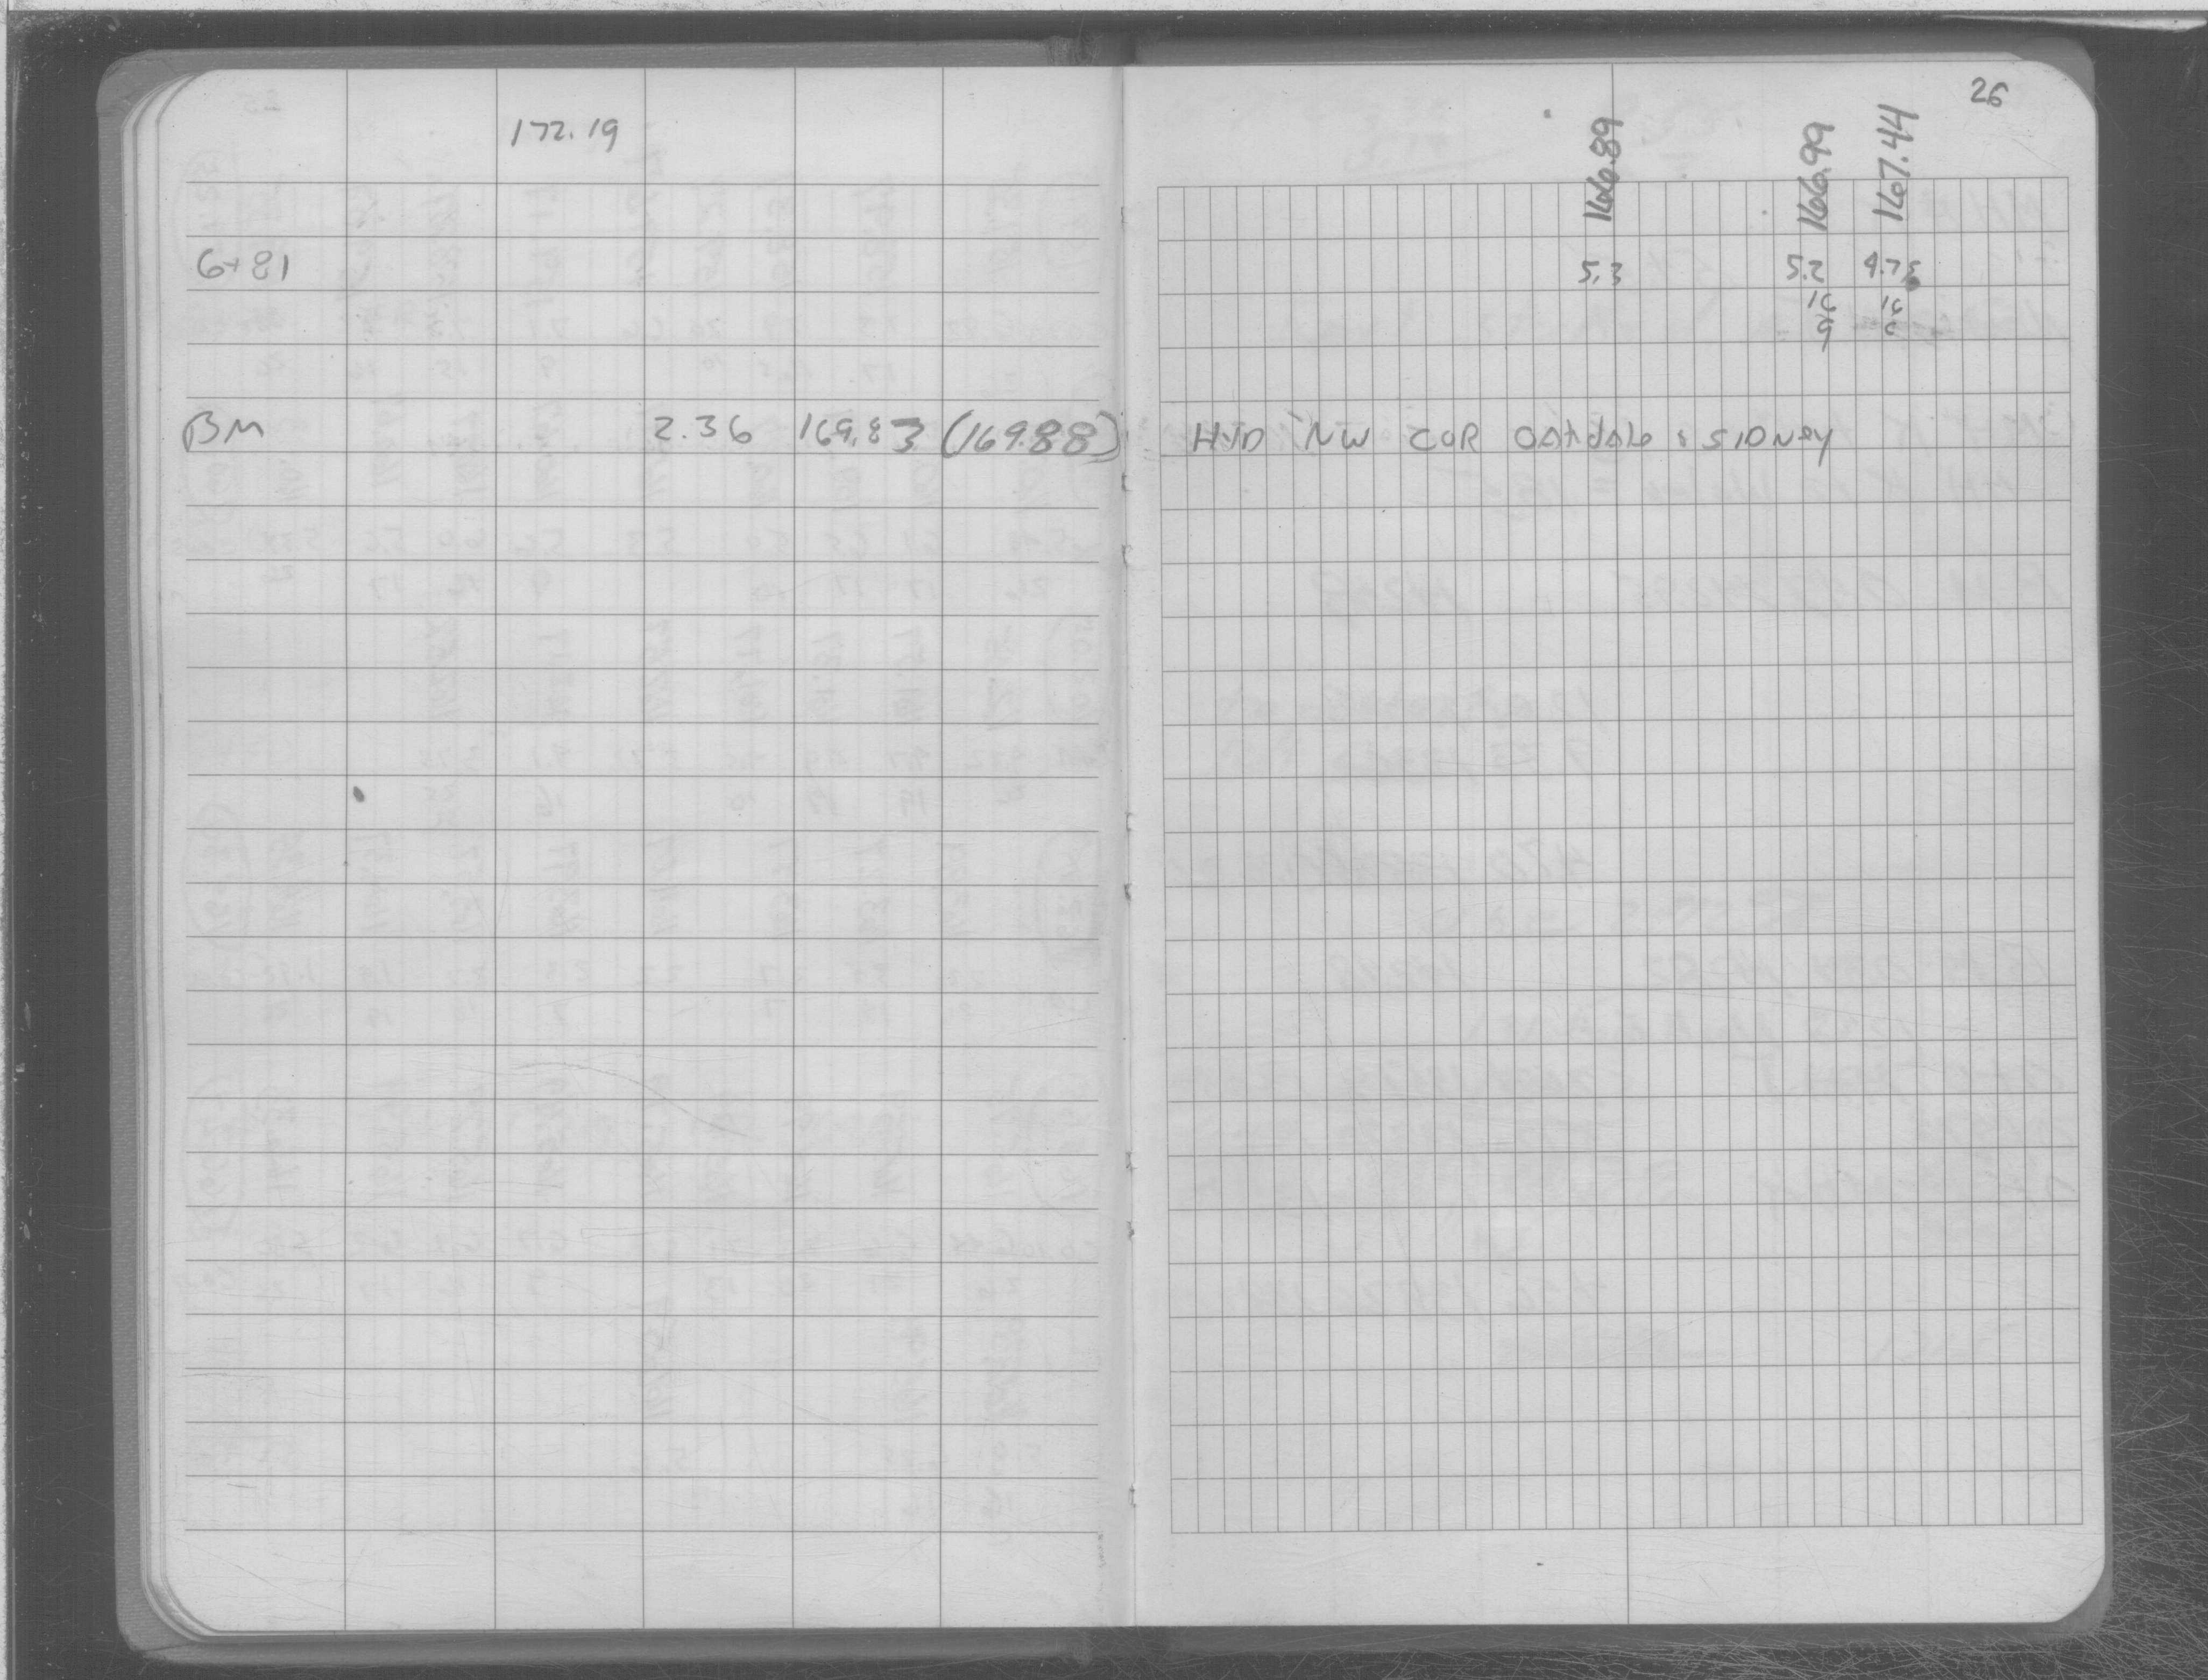 26
172.19
166.89 166.99 167.44
6+81 5.3 5.2 4.75
16 16
9 6
BM 2.36 169.83 (169.88) HYD NW COR OAKdAle & SIDNey